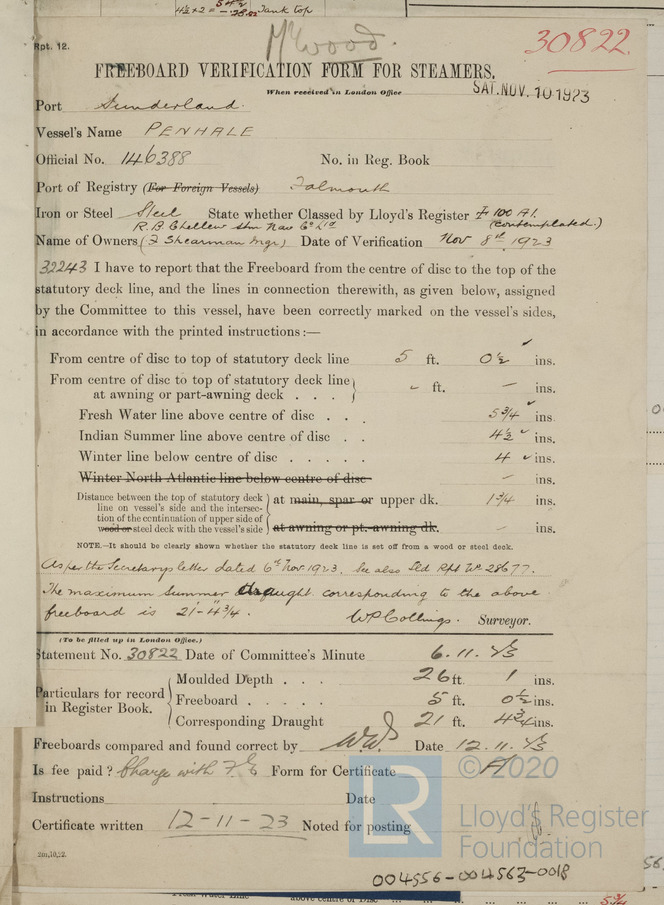 4½ × 2 = Tank top
Rpt. 12.
Mr Wood.
30822.
FREEBOARD VERIFICATION FORM FOR STEAMERS.
When received in London Office SAT. NOV. 10 1923
Port Sunderland.
Vessel's Name PENHALE
Official No. 146388 No. in Reg. Book
Port of Registry (For Foreign Vessels) Falmouth
Iron or Steel Steel State whether Classed by Lloyd's Register ✠ 100 A1.
R.B. Chellew Stm Nav Co Ltd (contemplated.)
Name of Owners (F Shearman Mgr) Date of Verification Nov 8th 1923
32243 I have to report that the Freeboard from the centre of disc to the top of the
statutory deck line, and the lines in connection therewith, as given below, assigned
by the Committee to this vessel, have been correctly marked on the vessel's sides,
in accordance with the printed instructions:—
From centre of disc to top of statutory deck line 5 ft. 0½ ins.
From centre of disc to top of statutory deck line
at awning or part-awning deck . . . - ft. - ins.
Fresh Water line above centre of disc . . . 5¾ ins.
Indian Summer line above centre of disc . . 4½ ins.
Winter line below centre of disc . . . . . 4 ins.
Winter North Atlantic line below centre of disc - ins.
Distance between the top of statutory deck
line on vessel's side and the intersec-
tion of the continuation of upper side of
wood or steel deck with the vessel's side
at main, spar or upper dk. 1¾ ins.
at awning or pt.-awning dk. - ins.
NOTE.—It should be clearly shown whether the statutory deck line is set off from a wood or steel deck.
As per the Secretary's letter dated 6th Nov. 1923. See also Sld Rpt No. 28677.
The maximum summer draught corresponding to the above
freeboard is 21'-4¾".
W P Collings. Surveyor.
(To be filled up in London Office.)
Statement No. 30822 Date of Committee's Minute 6.11.23
Particulars for record
in Register Book.
Moulded Depth . . . 26 ft. 1 ins.
Freeboard . . . . . 5 ft. 0½ ins.
Corresponding Draught 21 ft. 4¾ ins.
Freeboards compared and found correct by Date 12.11.23
Is fee paid? Charge with F.E. Form for Certificate
Instructions Date
Certificate written 12-11-23 Noted for posting
2m,10,22.
© 2020
LR
Lloyd's Register
Foundation
004556-004563-0018
above centre of Disc
5¾